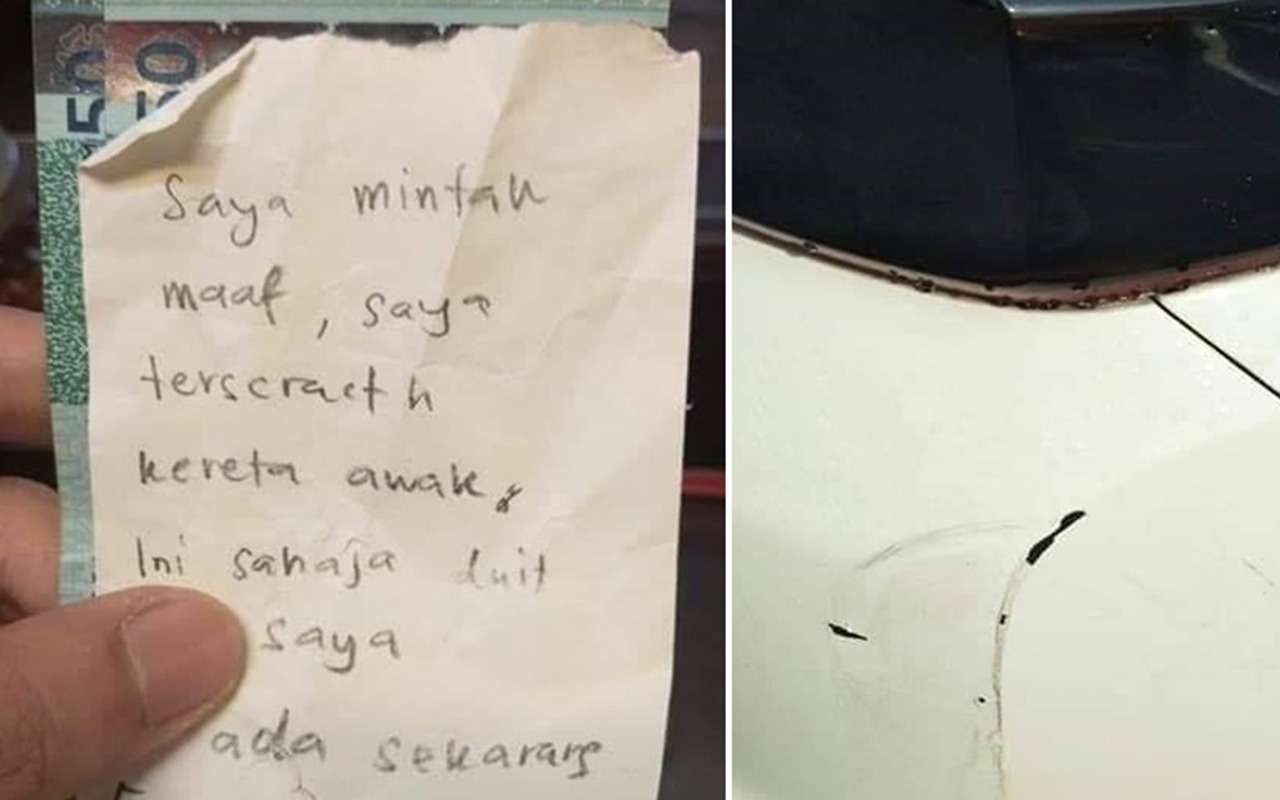 50
50
Saya mintah
maaf, saya
terscracth
kereta awak,
Ini sahaja duit
saya
ada sekarang